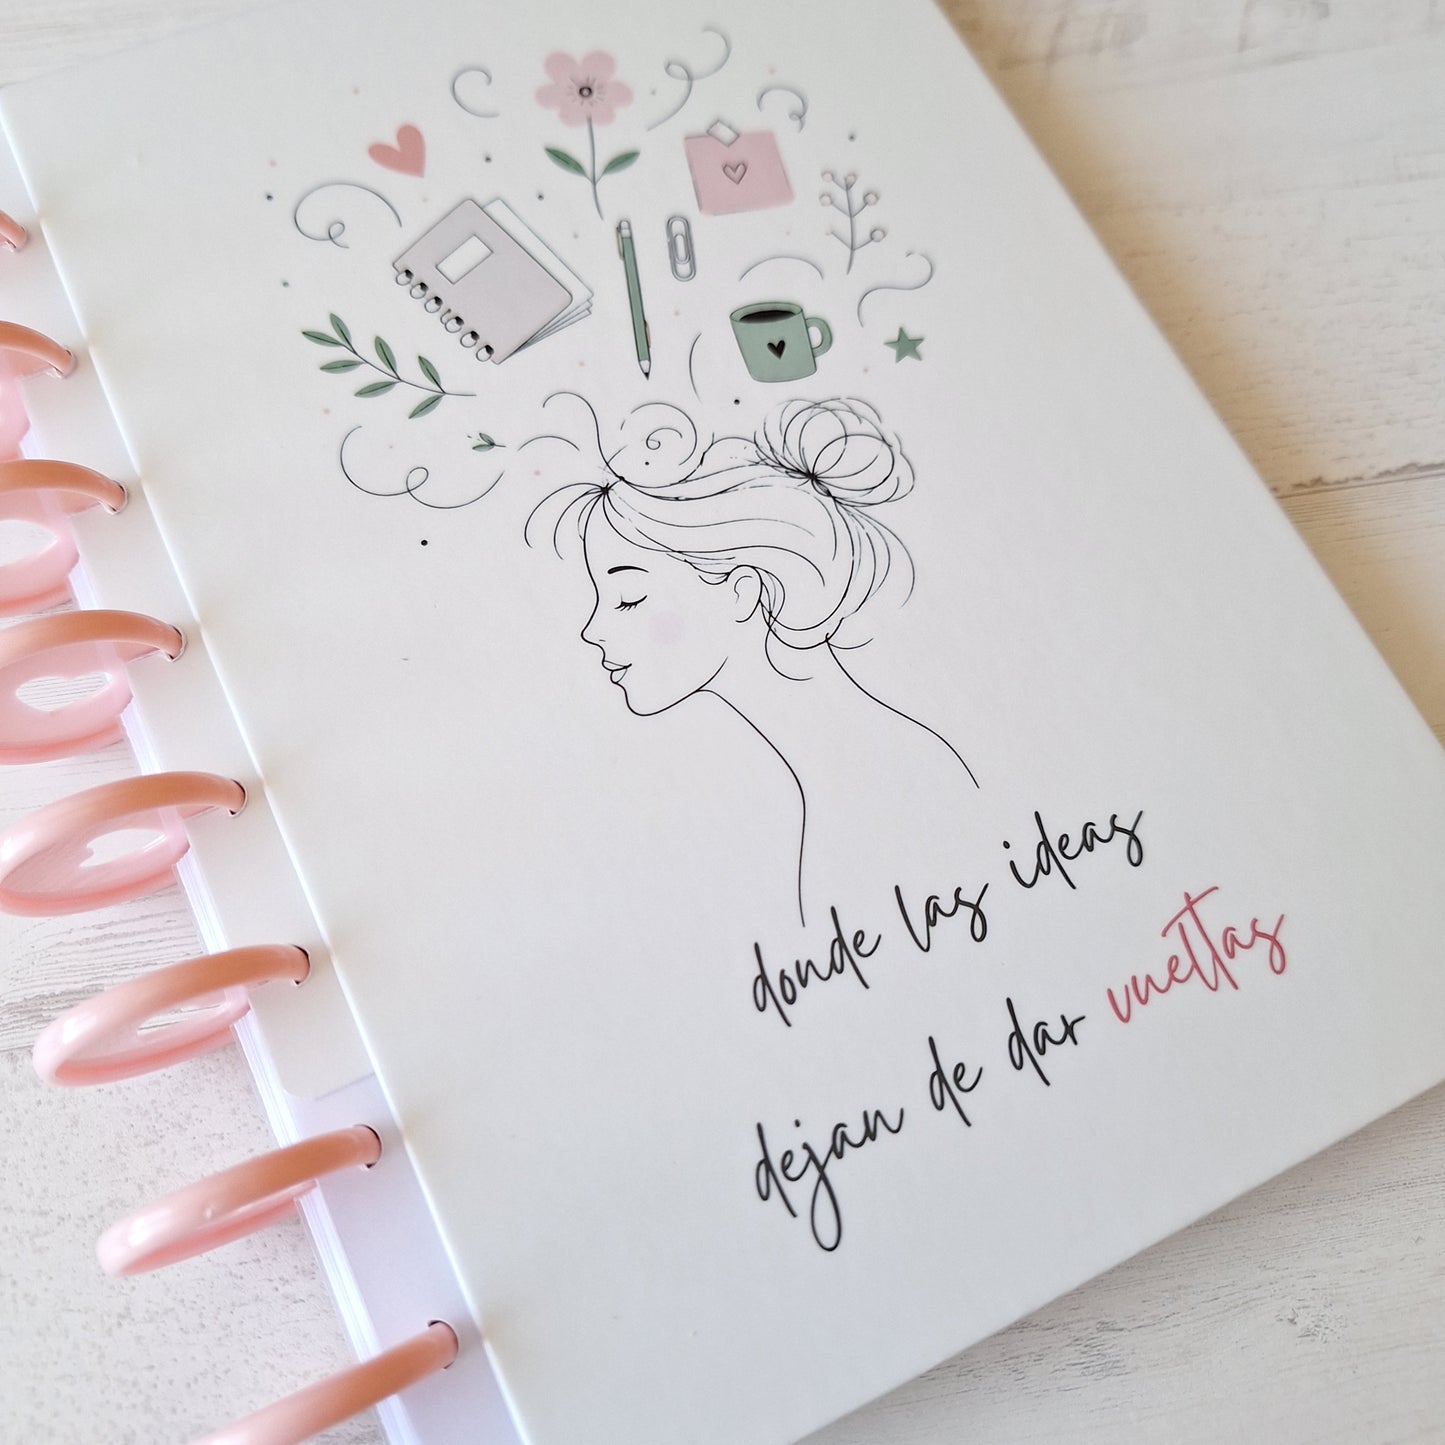 donde las ideas
dejan de dar vueltas